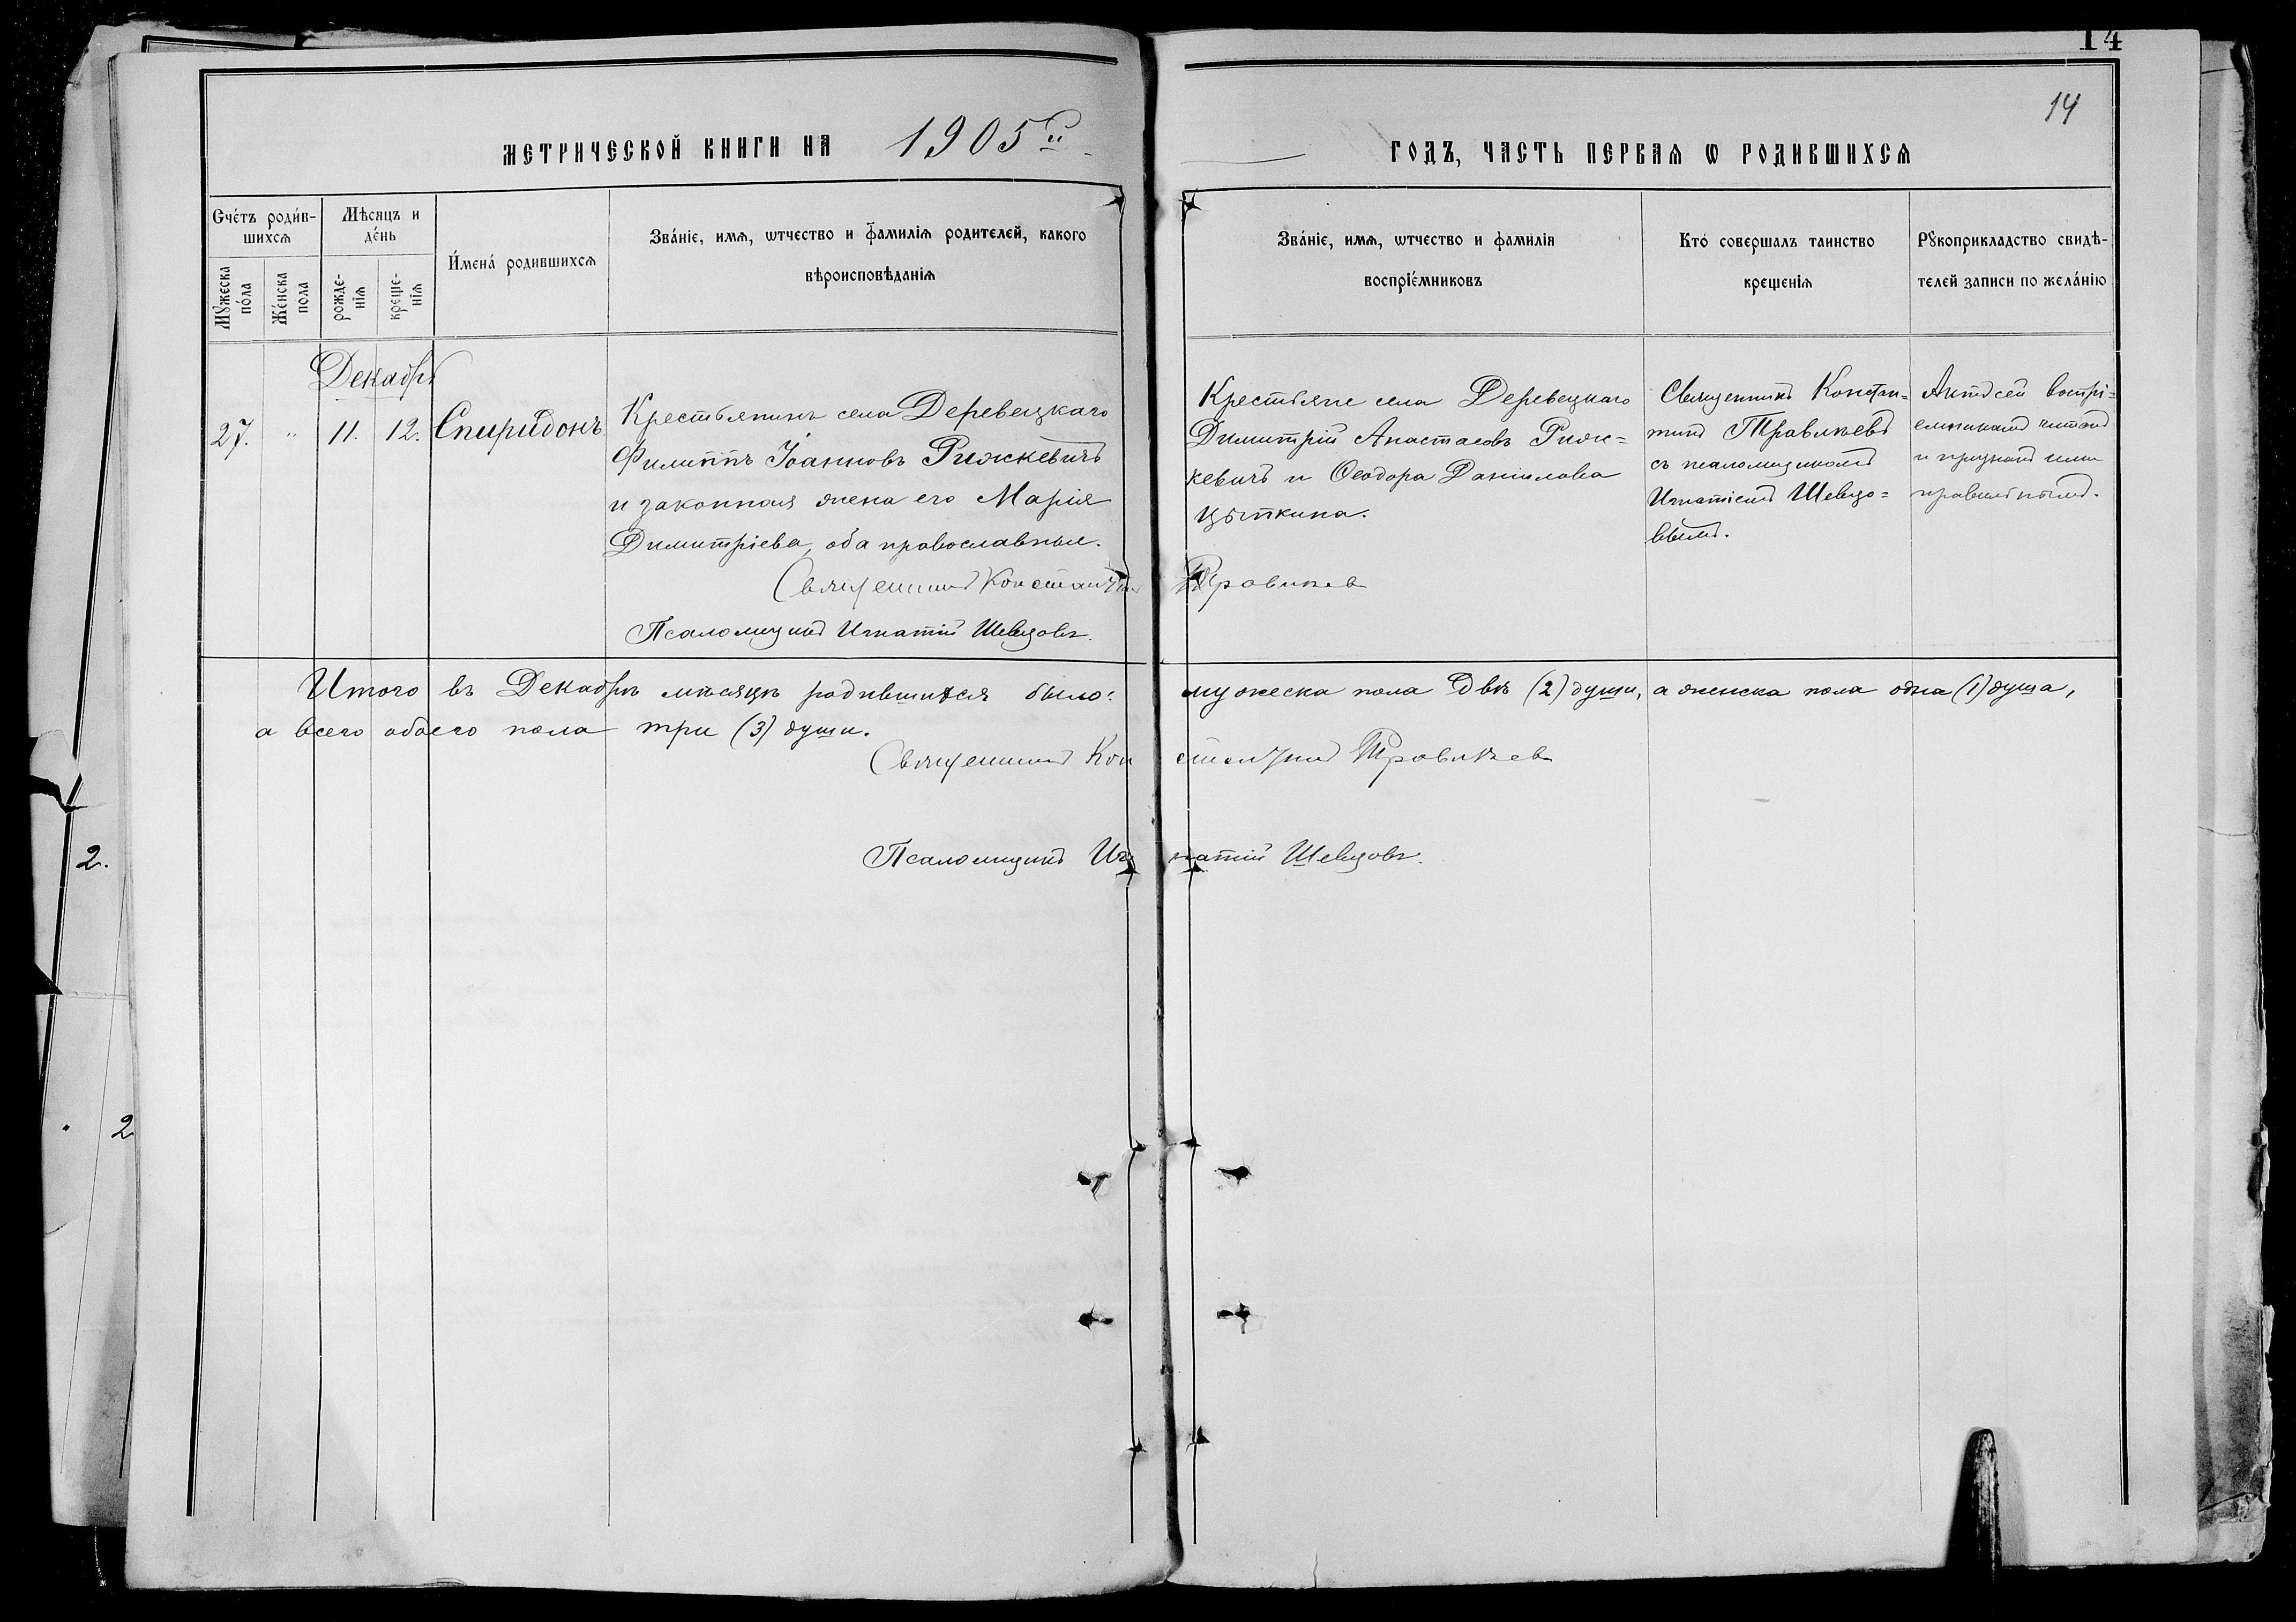 14
14
МЕТРИЧЕСКОЙ КНИГИ НА 1905й
ГОДЪ, ЧАСТЬ ПЕРВАЯ Ѡ РОДИВШИХСЯ
Счéтъ роди́в-
шихсѧ
Мѣсяцъ и
де́нь
И́мена́ родившихсѧ
Зва́нїе, имѧ, ѡтчество и фами́лїѧ родителей, какого
вѣроисповѣданїѧ
Мꙋжеска
по́ла
Же́нска
пола
рожде-
нїѧ
креще-
нїѧ
Зва́нїе, имѧ, ѡтчество и фами́лїѧ
воспрїе́мниковъ
Кто́ совершалъ таинство
крещенїѧ
Рꙋкоприкладство свидѣ-
телей записи по жела́нїю
Декабрь
27. " 11. 12. Спиридонъ
Крестьянинъ села Деревецкаго
Филиппъ Іоанновъ Рижкевичъ
и законная жена его Марія
Димитріева, оба православные.
Священникъ Константинъ Травлѣевъ
Псаломщикъ Игнатій Шевцовъ.
Крестьяне села Деревецкаго
Димитрій Анастасовъ Риж=
кевичъ и Ѳеодора Даніилова
Цѣпкина.
Священникъ Констан=
тинъ
съ псаломщикомъ
Игнатіемъ Шевцо=
вымъ.
Актъ сей воспрі=
емникамъ читанъ
и признанъ ими
правильнымъ.
Итого въ Декабрѣ мѣсяцѣ родившихся было: мужеска пола двѣ (2) души, а женска пола одна (1) душа,
а всего обоего пола три (3) души.
Священникъ Константинъ
Псаломщикъ Игнатій Шевцовъ.
2.
2